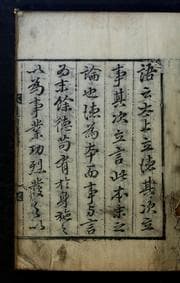 語云太上立德其次立
事其次立言此本末之
論也德為本而事與言
為末餘德苟有於身施之
以為事業功烈發之以